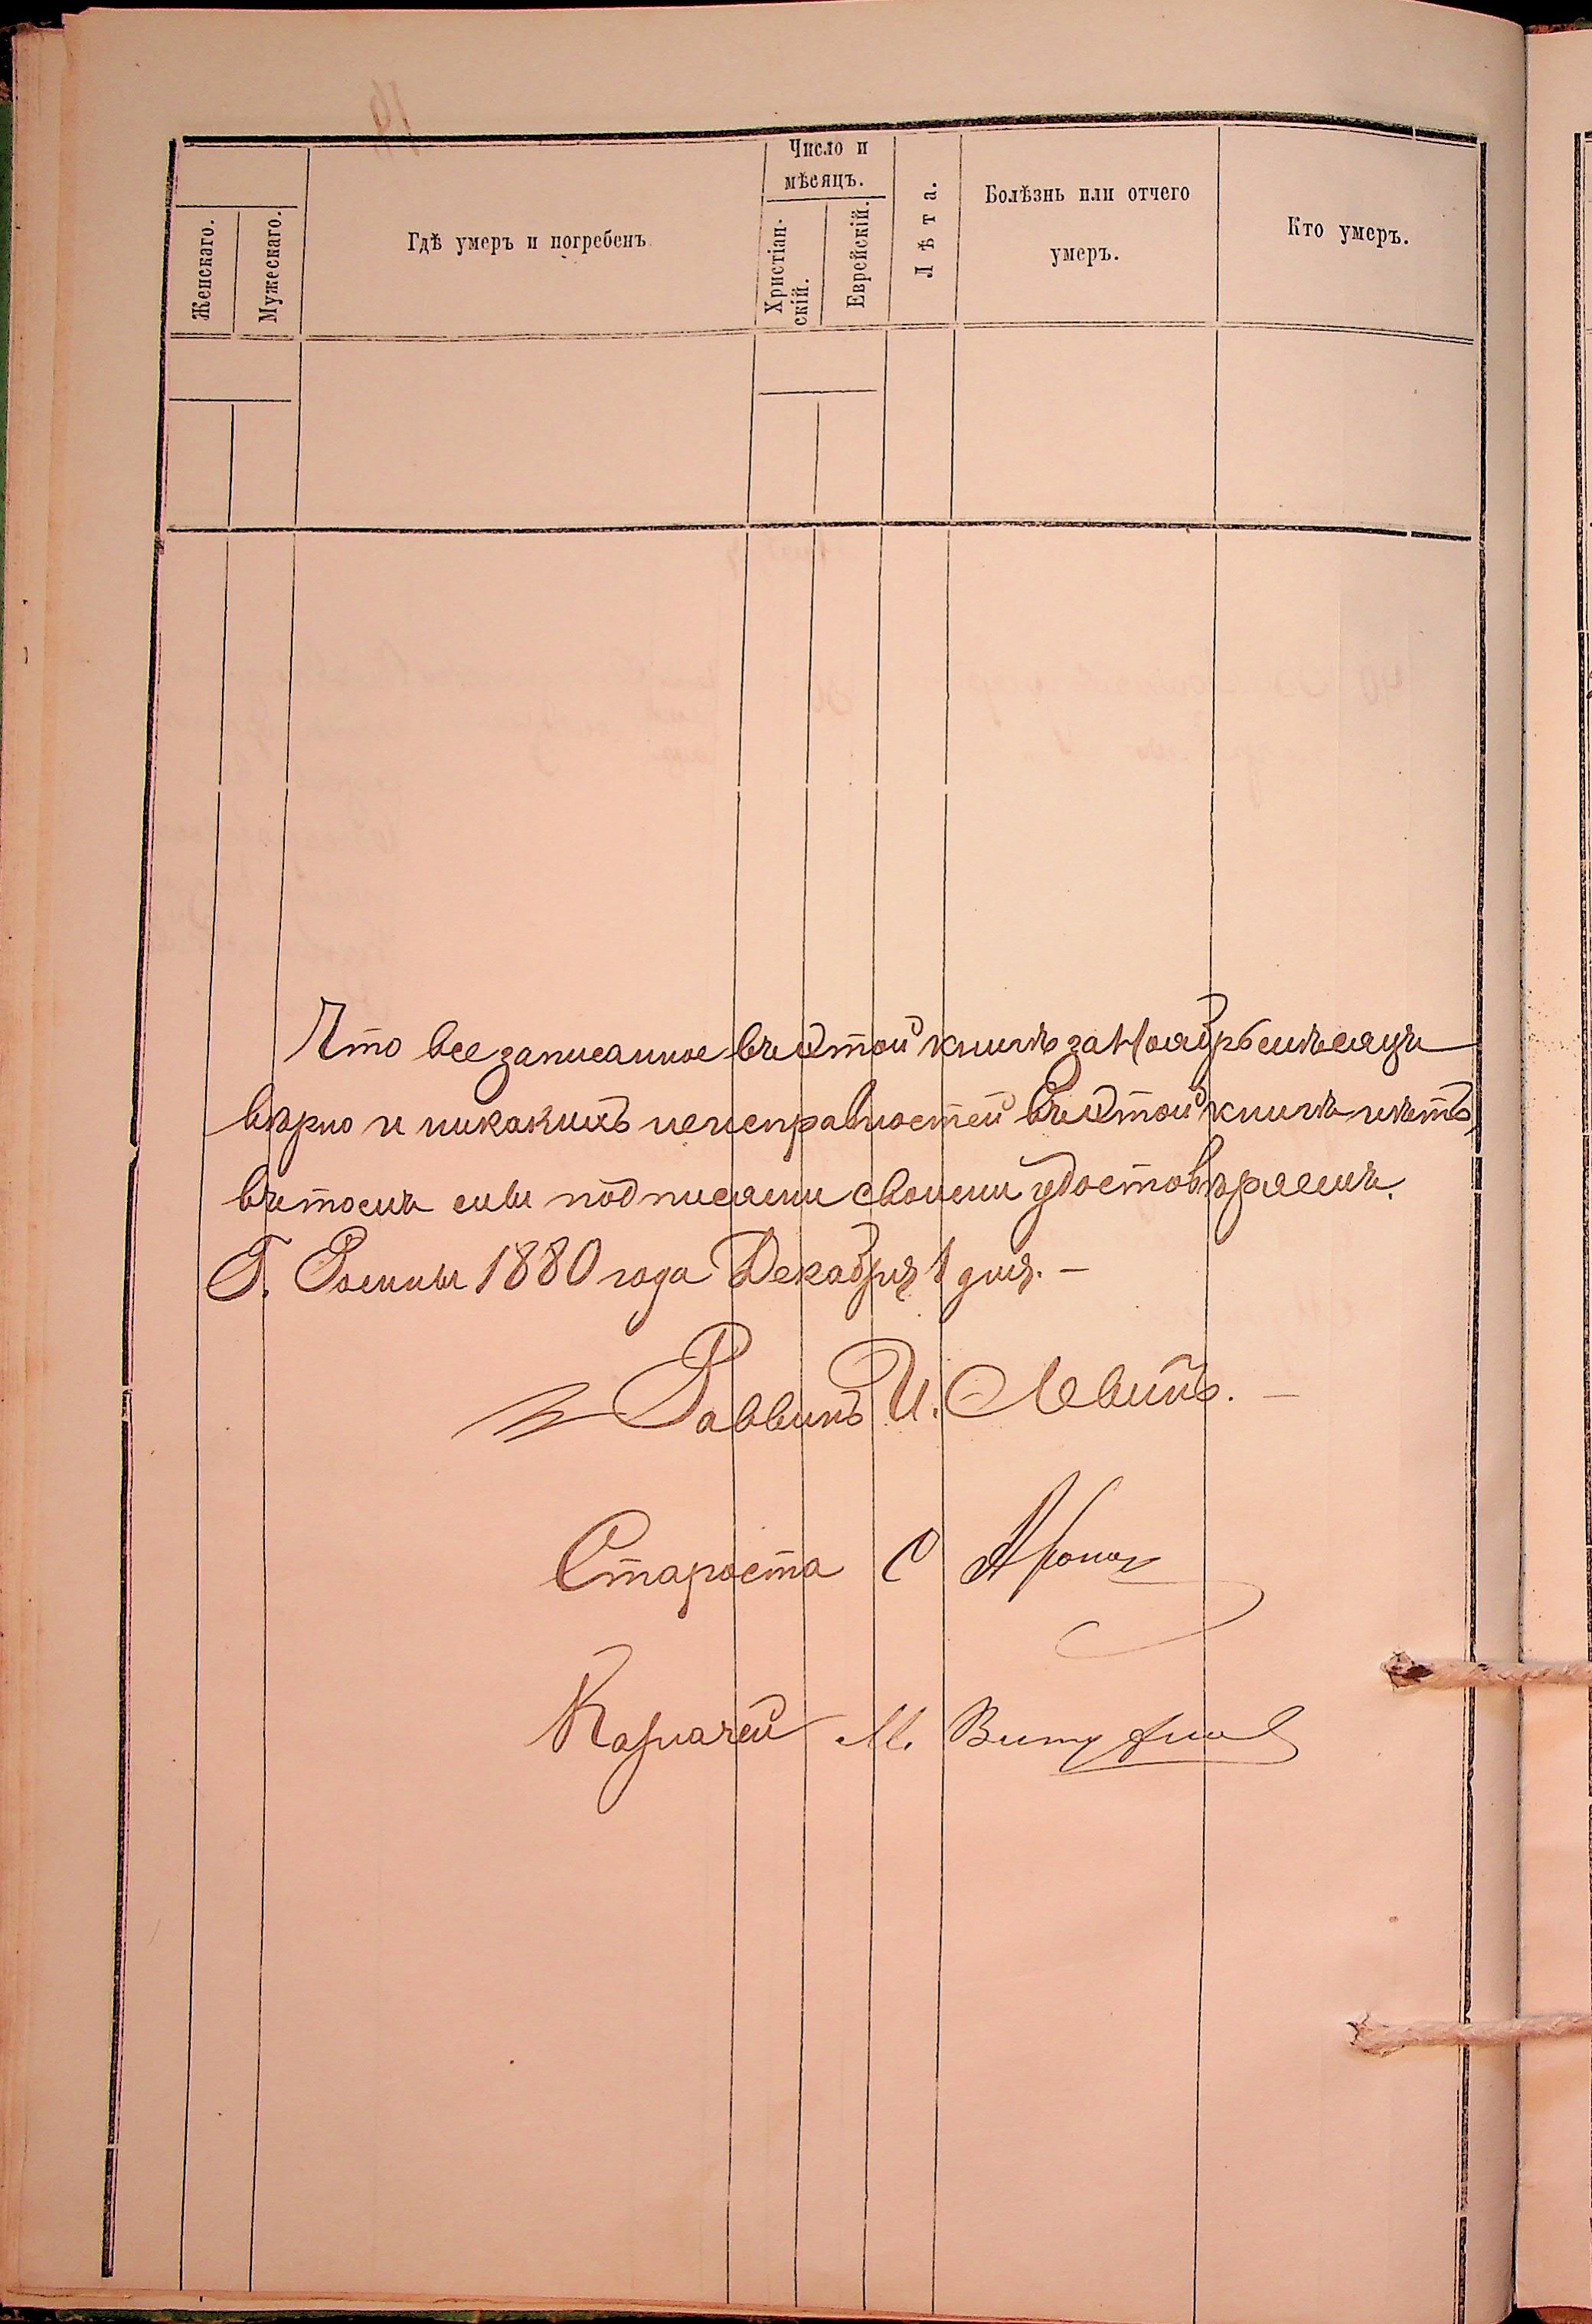 Число и
мѣсяцъ.
Женскаго.
Мужескаго.
Гдѣ умеръ и погребенъ
Христіан-
скій.
Еврейскій.
Лѣта.
Болѣзнь или отчего
умеръ.
Кто умеръ.
Что все записанное въ этой книгѣ за Ноябрь мѣсяцъ
вѣрно и никакихъ неисправностей въ этой книгѣ нѣтъ,
въ томъ сими подписями своими удостовѣряемъ.
Г. Ромны 1880 года Декабря 1 дня. —
Раввинъ И. Левитъ. —
Староста С Аронов
Казначей М.